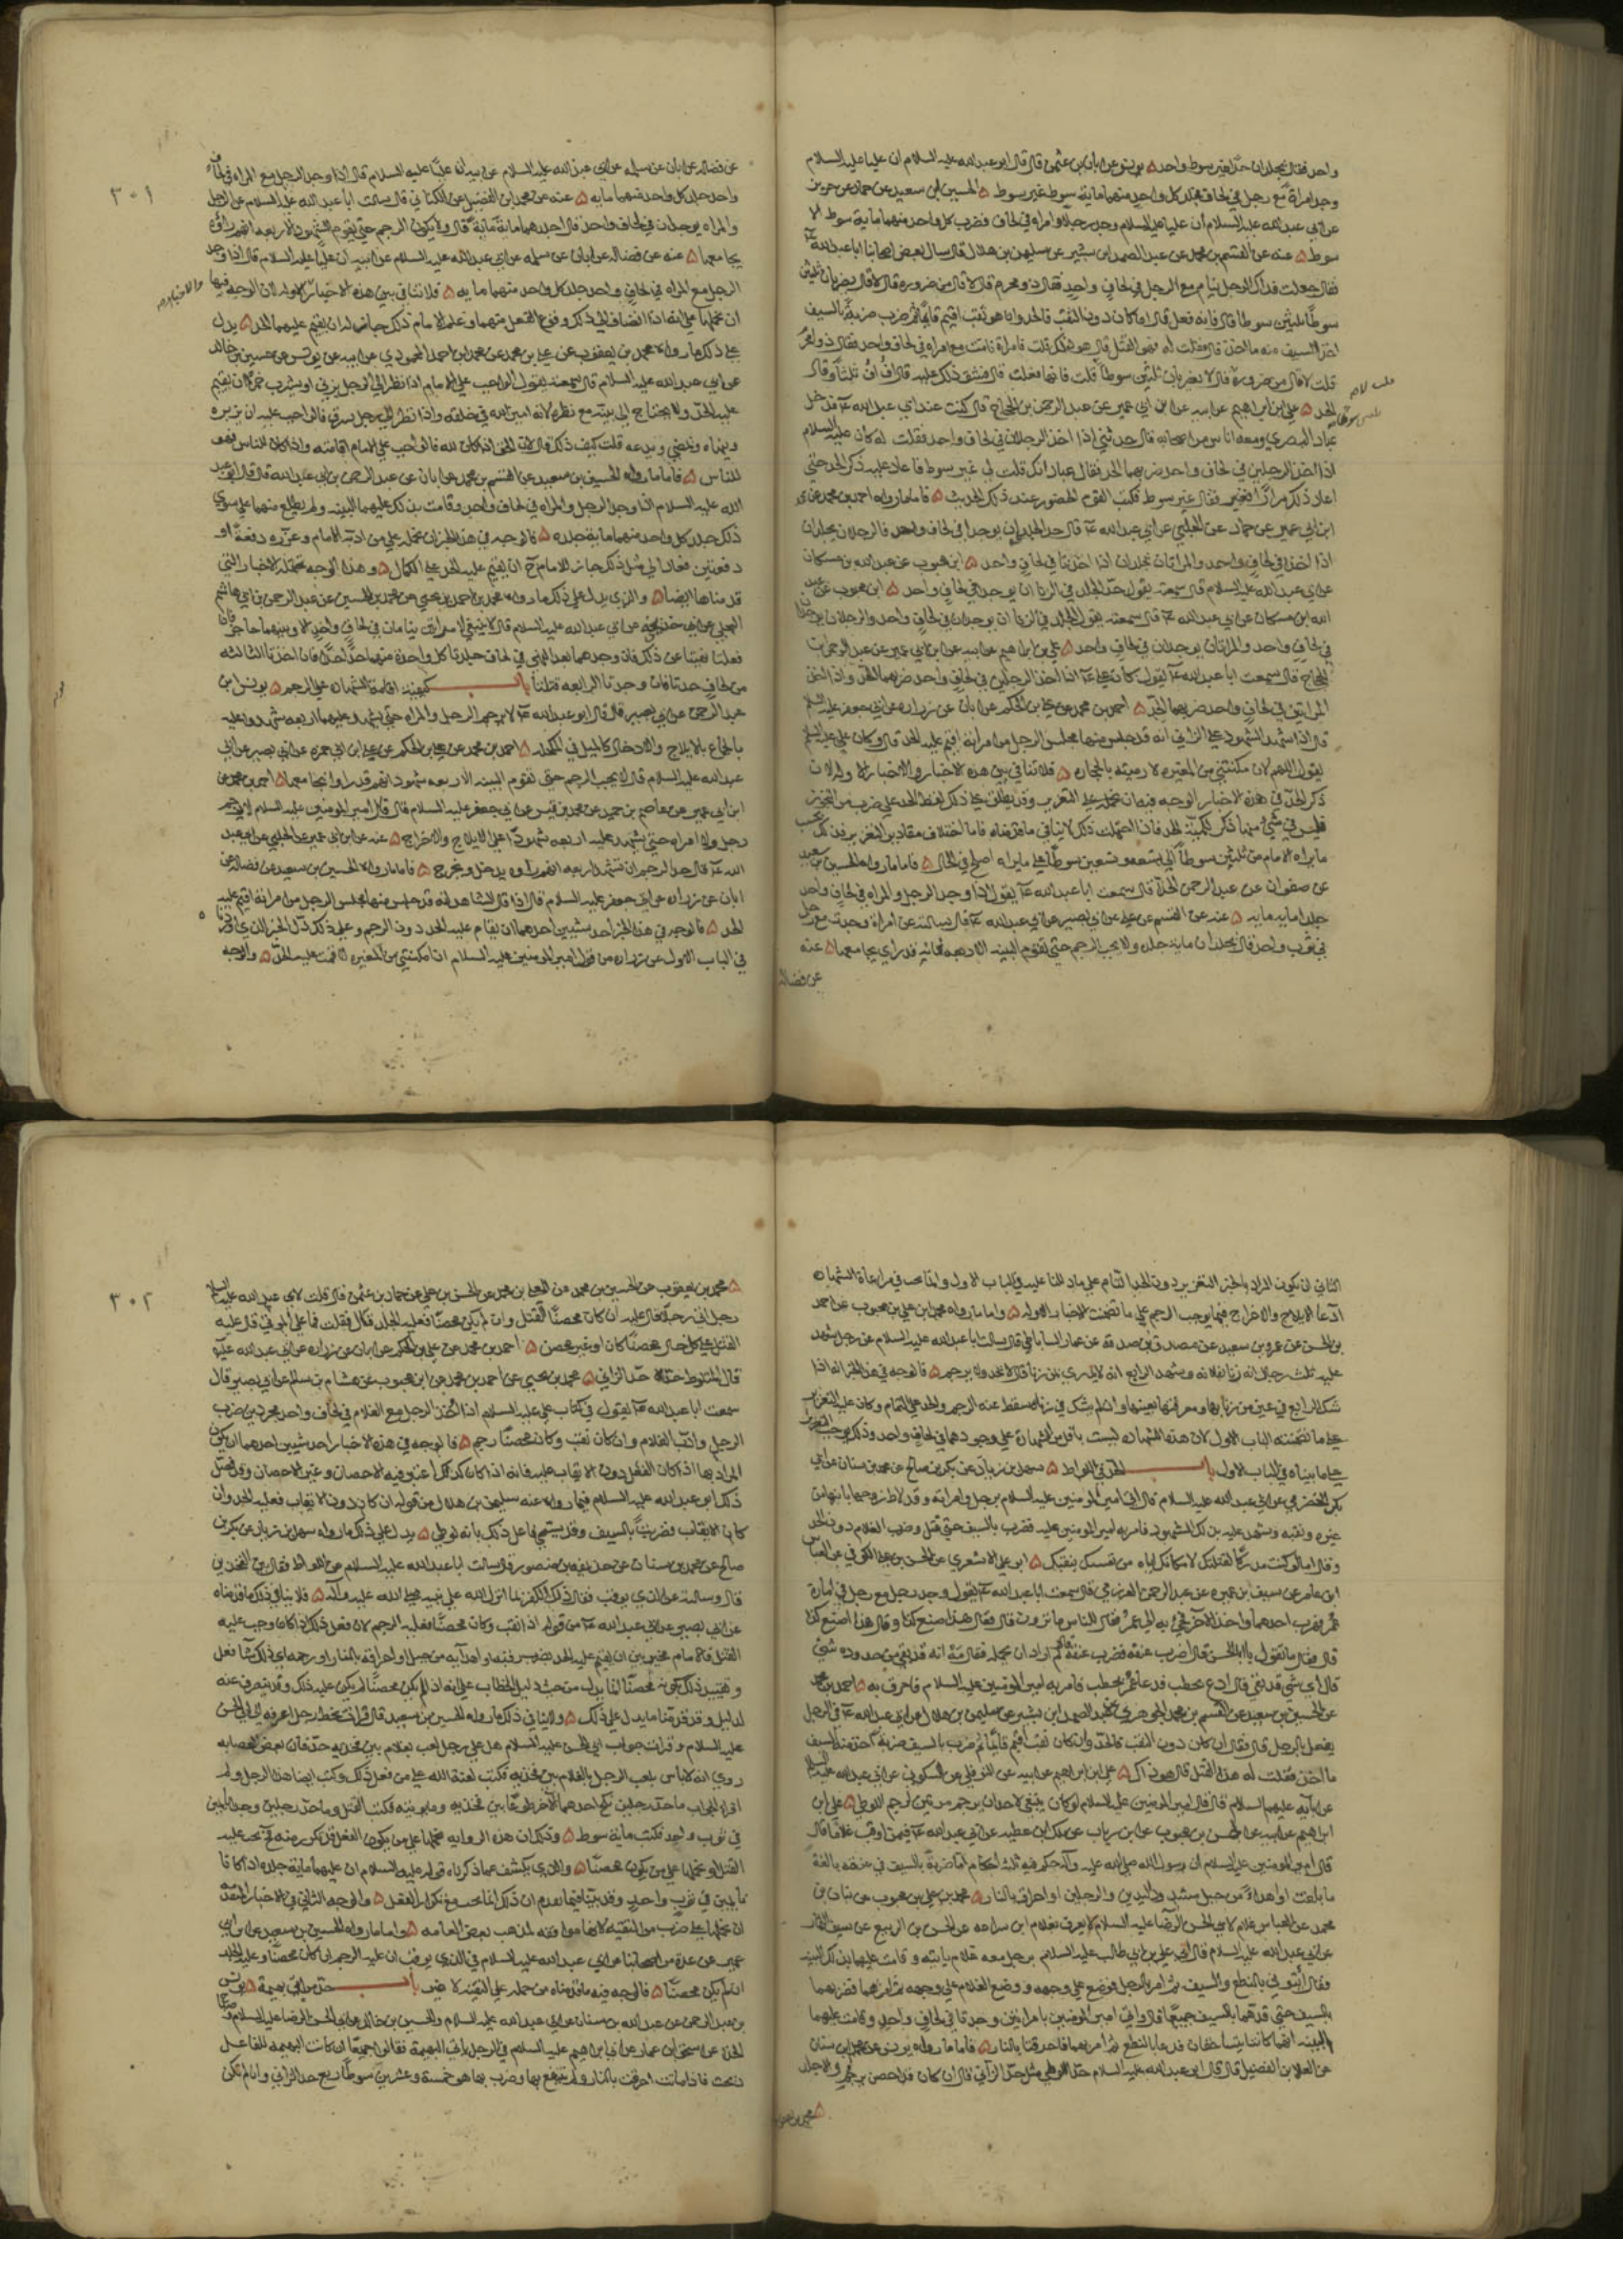 واحد فقال يجلدان حدا غير سوط واحد ٥ يونس عن ابان بن عثمن قال قال ابو عبدالله عليه السلام ان عليا عليه السلام
وجد امراة مع رجل في لحاف فجلد كل واحد منهما ماية سوط غير سوط ٥ الحسين بن سعيد عن حماد عن حريز
عن ابي عبدالله عليه السلام أن عليا عليه السلام وجد رجلا وامراه في لحاف فضرب كل واحد منهما ماية سوط الا
سوط ٥ عنه عن القسم بن محمد عن عبد الصمد بن بشير عن سليمن بن هلال قال سال بعض اصحابنا ابا عبدالله
فقال جعلت فداك الرجل ينام مع الرجل في لحاف واحد فقال ذو محرم قال لا قال من ضروره قال لا قال يضربان ثلثين
سوطا ثلثين سوطا قال فانه فعل قال ان كان دون الثقب فالحد وان هو ثقب اقيم قايما ثم ضرب ضربة بالسيف
اخذ السيف منه ما اخذ قال فقلت له فهو القتل قال هو ذلك قلت فامراة نامت مع امراه في لحاف واحد فقال ذو محرم
قلت لا قال من ضروره قال لا يضربان ثلثين سوطا قلت فانها فعلت قال فشق ذلك عليه قال اف اف ثلثا وقال
الحد ٥ علي بن ابراهيم عن ابيه عن ابن ابي عمير عن عبد الرحمن بن الحجاج قال كنت عند ابي عبد الله فدخل
عباد البصري ومعه اناس من اصحابه قال حدثني اذا اخذ الرجلان في لحاف واحد فقلت له كان علي عليه السلام
اذا اخذ الرجلين في لحاف واحد ضربهما الحد فقال عباد انك قلت لي غير سوط فاعاد عليه ذكر الحد حتي
اعاد ذلك مرارا فقال غير سوط فكتب القوم الحضور عند ذلك الحديث ٥ فاما ما رواه احمد بن محمد عن
ابن ابي عمير عن حماد عن الحلبي عن ابي عبدالله قال حد الجلد ان يوجدا في لحاف واحد فالرجلان يجلدان
اذا اخذا في لحاف واحد والمراتان تجلدان اذا اخذتا في لحاف واحد ٥ ابن محبوب عن عبدالله بن مسكان
عن ابي عبدالله عليه السلام قال سمعته يقول حد الجلد في الزنا ان يوجدا في لحاف واحد ٥ ابن محبوب عن عبد
الله بن مسكان عن ابي عبدالله قال سمعته يقول الجلد في الزنا ان يوجدان في لحاف واحد والرجلان يوجدان
في لحاف واحد والمراتان يوجدان في لحاف واحد ٥ علي بن ابراهيم عن ابيه عن ابن ابي عمير عن عبد الرحمن بن
الحجاج قال سمعت ابا عبدالله يقول كان علي اذا اخذ الرجلين في لحاف واحد ضربهما الحد واذا اخذ
المراتين في لحاف واحد ضربهما الحد ٥ احمد بن محمد عن علي بن الحكم عن ابان عن زراره عن ابي جعفر عليه السلام
قال اذا شهد الشهود علي الزاني انه قد جلس منها مجلس الرجل من امراته اقيم عليه الحد قال وكان علي عليه السلم
يقول اللهم ان مكنتني من المغيره لارمينه بالحجاره ٥ فلا تنافي بين هذه الاخبار والاخبار الاوله لان
ذكر الحد في هذه الاخبار الوجه فيه ان نحمله علي التعزير وقد يطلق علي ذلك لفظ الحد علي ضرب من التجوز
فليس في شي منها ذكر لكمية الحد فاذا احتملت ذلك لا ينافي ما قدمناه فاما اختلاف مقادير التعزير فذلك بحسب
ما يراه الامام من ثلثين سوطا الي تسعه وتسعين سوطا علي ما يراه اصلح في الحال ٥ فاما ما رواه الحسين بن سعيد
عن صفوان عن عبد الرحمن الحذا قال سمعت ابا عبدالله يقول اذا وجد الرجل والمراه في لحاف واحد
جلدا مايه مايه ٥ عنه عن القسم عن علي عن ابي بصير عن ابي عبدالله قال سالته عن امراة وجدت مع رجل
في ثوب واحد قال يجلدان ماية جلده ولا يجب الرجم حتي تقوم البينه الاربعه بانه قد راي يجامعها ٥ عنه
عن فضاله
٣٠١
عن فضاله عن ابان عن سلمه عن ابي عبدالله عليه السلام عن ابيه ان عليا عليه السلام قال اذا وجد الرجل مع المراه في لحاف
واحد جلد كل واحد منهما مايه ٥ عنه عن محمد بن الفضيل عن الكناني قال سالت ابا عبدالله عليه السلام عن الرجل
والمراه يوجدان في لحاف واحد قال اجلدهما ماية ماية قال ولا يكون الرجم حتي يقوم الشهود الاربعه انهم راوه
يجامعها ٥ عنه عن فضاله عن ابان عن سلمه عن ابي عبدالله عليه السلام عن ابيه ان عليا عليه السلام قال اذا وجد
الرجل مع المراه في لحاف واحد جلد كل واحد منهما مايه ٥ فلا تنافي بين هذه الاخبار والاوله لان الوجه فيها
ان نحملها علي انه اذا انضاف الي ذلك وقوع الفعل منهما وعلم الامام ذلك جاز له ان يقيم عليهما الحد ٥ يدل
علي ذلك ما رواه محمد بن يعقوب عن علي بن محمد عن محمد بن احمد المحمودي عن ابيه عن يونس عن حسين بن خالد
عن ابي عبدالله عليه السلام قال سمعته يقول الواجب علي الامام اذا نظر الي الرجل يزني او يشرب خمرا ان يقيم
عليه الحد ولا يحتاج الي بينه مع نظره لانه امين الله في خلقه واذا نظر الي رجل يسرق فالواجب عليه ان يزبره
وينهاه ويمضي ويدعه قلت كيف ذلك قال لان الحق اذا كان لله فالواجب علي الامام اقامته واذا كان للناس فهو
للناس ٥ فاما ما رواه الحسين بن سعيد عن القسم بن محمد عن ابان عن عبد الرحمن بن ابي عبدالله قال قال ابو عبد
الله عليه السلام اذا وجد الرجل والمراه في لحاف واحد وقامت بذلك عليهما البينه ولم يطلع منهما علي سوي
ذلك جلد كل واحد منهما ماية جلده ٥ فالوجه في هذا الخبر ان نحمله علي من ادبه الامام وعزره دفعة او
دفعتين فعاد الي مثل ذلك جاز للامام ح ان يقيم عليه الحد علي الكمال ٥ وهذا الوجه تحتمله الاخبار التي
قدمناها ايضا ٥ والذي يدل علي ذلك ما رواه محمد بن احمد بن يحيي عن محمد بن الحسين عن عبد الرحمن بن ابي هاشم
البجلي عن ابي خديجه عن ابي عبدالله عليه السلام قال لا ينبغي لامراتين ينامان في لحاف واحد الا وبينهما حاجز فان
فعلتا نهيتا عن ذلك فان وجدهما بعد النهي في لحاف جلدتا كل واحدة منهما حدا حدا فان اخذتا الثالثه
في لحاف حدتا فان وجدتا الرابعه قتلتا باب كيفية اقامة الشهاده علي الرجم ٥ يونس بن
عبد الرحمن عن ابي بصير قال قال ابو عبدالله لا يرجم الرجل والمراه حتي يشهد عليهما اربعه شهدا عليه
بالجماع بالايلاج والادخال كالميل في المكحله ٥ احمد بن محمد عن علي بن الحكم عن علي بن ابي حمزه عن ابي بصير عن ابي
عبدالله عليه السلام قال لا يجب الرجم حتي تقوم البينه الاربعه شهود انهم قد راوه يجامعها ٥ احمد بن محمد عن
ابن ابي عمير عن عاصم بن حميد عن محمد بن قيس عن ابي جعفر عليه السلام قال قال امير المومنين عليه السلام لا يرجم
رجل ولا امراه حتي يشهد عليه اربعه شهود علي الايلاج والاخراج ٥ عنه عن ابن ابي عمير عن الحلبي عن ابي عبد
الله قال حد الرجم ان تشهد اربعه انهم راوه يدخل ويخرج ٥ فاما ما رواه الحسين بن سعيد عن فضاله عن
ابان عن زراره عن ابي جعفر عليه السلام قال اذا قال الشاهد انه قد جلس منها مجلس الرجل من امراته اقيم عليه
الحد ٥ فالوجه في هذا الخبر احد شيئين احدهما ان يقام عليه الحد دون الرجم وعلي ذلك دل الخبر الذي اوردناه
في الباب الاول عن زراره من قول امير المومنين عليه السلام ان امكنتني من المغيره لاقمت عليه الحد ٥ والوجه
الثاني ان يكون المراد بالخبر التعزير دون الحد التام علي ما دللنا عليه في الباب الاول وانما يجب في مراعاة الشهاده
ادعا الايلاج والاخراج فيما يوجب الرجم علي ما تضمنته الاخبار الاوله ٥ واما ما رواه محمد بن علي بن محبوب عن احمد
بن الحسن عن عمرو بن سعيد عن مصدق بن صدقه عن عمار الساباطي قال سالت ابا عبدالله عليه السلام عن رجل شهد
عليه ثلث رجال انه زنا بفلانه وشهد الرابع انه لا يدري بمن زنا قال لا يحد ولا يرجم ٥ فالوجه في هذا الخبر انه اذا
شك الرابع في عين من زنا بها ومعرفتها بعينها وان لم يشك في زناه سقط عنه الرجم والحد علي التمام وكان عليه التعزير
علي ما تضمنته الباب الاول لان هذه الشهاده ليست باقل من الشهادة علي وجودهما في لحاف واحد وذلك يوجب التعزير
علي ما بيناه في الباب الاول باب الحد في اللواط ٥ سهل بن زياد عن بكر بن صالح عن محمد بن سنان عن ابي
بكر الحضرمي عن ابي عبدالله عليه السلام قال اتي امير المومنين عليه السلام برجل وامراته وقد لاط زوجها بابنها من
غيره وثقبه وشهد عليه بذلك الشهود فامر به امير المومنين عليه فضرب بالسيف حتي قتل وضرب الغلام دون الحد
وقال اما لو كنت مدركا لقتلتك لامكانك اياه من نفسك بثقبك ٥ ابو علي الاشعري عن الحسن بن علي الكوفي عن العباس
ابن عامر عن سيف بن عميره عن عبد الرحمن العرزمي قال سمعت ابا عبدالله يقول وجد رجل مع رجل في امارة
عمر فهرب احدهما واخذ الاخر فجئ به الي عمر فقال للناس ما ترون قال فقال هذا اصنع كذا وقال هذا اصنع كذا
قال فقال ما تقول يا ابا الحسن قال اضرب عنقه فضرب عنقه قال ثم اراد ان يحمله فقال مه انه قد بقي من حدوده شئ
قال اي شي قد بقي قال ادع بحطب فدعا عمر بحطب فامر به امير المومنين عليه السلام فاحرق به ٥ احمد بن محمد
عن الحسين بن سعيد عن القسم بن محمد الجوهري عن عبد الصمد بن بشير عن سليمن بن هلال عن ابي عبدالله في الرجل
يفعل بالرجل قال فقال ان كان دون الثقب فالحد وان كان ثقب اقيم قايما ثم ضرب بالسيف ضربة اخذ منه السيف
ما اخذ فقلت له هذا القتل قال هو ذاك ٥ علي بن ابراهيم عن ابيه عن النوفلي عن السكوني عن ابي عبدالله عليه السلام
عن ابايه عليهم السلام قال قال امير المومنين عليه السلام لو كان ينبغي لاحد ان يرجم مرتين لرجم اللوطي ٥ علي بن
ابراهيم عن ابيه عن الحسن بن محبوب عن ابن رياب عن ملك بن عطيه عن ابي عبدالله فيمن اوقب غلاما قال
قال امير المومنين عليه السلام ان رسول الله صلي الله عليه وآله حكم فيه ثلث احكام اما ضربة بالسيف في عنقه بالغة
ما بلغت او اهداء من جبل مشدود اليدين والرجلين او احراق بالنار ٥ محمد بن علي بن محبوب عن بنان بن
محمد عن العباس غلام لابي الحسن الرضا عليه السلام لا يعرف بغلام ابن شراعه عن الحسن بن الربيع عن سيف التمار
عن ابي عبدالله عليه السلام قال اتي علي بن ابي طالب عليه السلام برجل معه غلام ياتيه وقامت عليهما بذلك البينه
وقال ايتوني بالنطع والسيف ثم امر بالرجل فوضع علي وجهه ووضع الغلام علي وجهه ثم امر بهما فضربهما
بالسيف حتي قدهما بالسيف جميعا قال واتي امير المومنين بامراتين وجدتا في لحاف واحد وقامت عليهما
البينه انهما كانتا يتساحقان فدعا بالنطع ثم امر بهما فاحرقتا بالنار ٥ فاما ما رواه يونس عن محمد بن سنان
عن العلا بن الفضيل قال قال ابو عبدالله عليه السلام حد اللوطي مثل حد الزاني قال ان كان قد احصن يرجم والا جلد
٥ محمد بن يعقوب
٣٠٢
٥ محمد بن يعقوب عن الحسين بن محمد عن المعلي بن محمد عن الحسن بن علي عن حماد بن عثمن قال قلت لابي عبدالله عليه السلام
رجل اتي رجلا قال عليه ان كان محصنا القتل وان لم يكن محصنا فعليه الجلد قال فقلت فما علي الموتي قال عليه
القتل علي كل حال محصنا كان او غير محصن ٥ احمد بن محمد عن علي بن الحكم عن ابان عن زراره عن ابي عبدالله عليه
قال المتلوط حده حد الزاني ٥ محمد بن يحيي عن احمد بن محمد عن ابن محبوب عن هشام بن سالم عن ابي بصير قال
سمعت ابا عبدالله يقول في كتاب علي عليه السلام اذا اخذ الرجل مع الغلام في لحاف واحد مجردين ضرب
الرجل وادب الغلام وان كان ثقب وكان محصنا رجم ٥ فالوجه في هذه الاخبار احد شيئين احدهما ان يكون
المراد بها اذا كان الفعل دون الايقاب عليه فانه اذا كان كذلك اعتبر فيه الاحصان وغير الاحصان وقد فصل
ذلك ابو عبدالله عليه السلام فيما رواه عنه سليمن بن هلال من قوله ان كان دون الايقاب فعليه الحد وان
كان الايقاب فضربة بالسيف وقد يسمي فاعل ذلك بانه لوطي ٥ يدل علي ذلك ما رواه سهل بن زياد عن بكر بن
صالح عن محمد بن سنان عن حذيفه بن منصور قال سالت ابا عبدالله عليه السلام عن اللواط فقال بين الفخذين
قال وسالته عن الذي يوقب فقال ذلك الكفر بما انزل الله علي نبيه صلي الله عليه وآله ٥ فلا ينافي ذلك ما قدمناه
عن ابي بصير عن ابي عبدالله من قوله اذا ثقب وكان محصنا فعليه الرجم لان فعل ذلك اذا كان وجب عليه
القتل فالامام مخير بين ان يقيم عليه الحد بضرب رقبته او اهدائه من جبل او احراقه بالنار او رجمه اي ذلك شا فعل
وتقييد ذلك بكونه محصنا انما يدل من حيث دليل الخطاب علي انه اذا لم يكن محصنا لم يكن عليه ذلك وقد ينصرف عنه
لدليل وقد قدمنا ما يدل علي ذلك ٥ ولا ينافي ذلك ما رواه الحسين بن سعيد قال قرات بخط رجل اعرفه الي ابي الحسن
عليه السلام وقرات جواب ابي الحسن عليه السلام هل علي رجل لعب بغلام بين فخذيه حد فان بعض العصابه
روي انه لا باس بلعب الرجل بالغلام بين فخذيه فكتب لعنة الله علي من فعل ذلك وكتب ايضا هذا الرجل ولم
ار الجواب ما حد رجلين نكح احدهما الاخر طوعا بين فخذيه وما توبته فكتب القتل وما حد رجلين وجدا نايمين
في ثوب واحد فكتب ماية سوط ٥ وذلك ان هذه الروايه نحملها علي من يكون الفعل قد تكرر منه فح يجب عليه
القتل او نحملها علي من يكون محصنا ٥ والذي يكشف عما ذكرناه قوله عليه السلام ان عليهما ماية جلده اذا كانا
نايمين في ثوب واحد وقد بينا فيما تقدم ان ذلك انما يجب مع تكرار الفعل ٥ والوجه الثاني في الاخبار المتقدمه
ان نحملها علي ضرب من التقيه لانها موافقه لمذهب بعض العامه ٥ واما ما رواه الحسين بن سعيد عن ابن ابي
عمير عن عدة من اصحابنا عن ابي عبدالله عليه السلام في الذي يوقب ان عليه الرجم ان كان محصنا وعليه الجلد
ان لم يكن محصنا ٥ فالوجه فيه ما قدمناه من حمله علي التقيه لا غير باب حد من اتي بهيمة ٥ يونس
بن عبد الرحمن عن عبدالله بن سنان عن ابي عبدالله عليه السلام والحسين بن خالد عن ابي الحسن الرضا عليه السلام وصباح
الحذا عن اسحق بن عمار عن ابي ابراهيم عليه السلام في الرجل ياتي البهيمة فقالوا جميعا ان كانت البهيمه للفاعل
ذبحت فاذا ماتت احرقت بالنار ولم ينتفع بها وضرب بها هو خمسة وعشرين سوطا ربع حد الزاني وان لم تكن